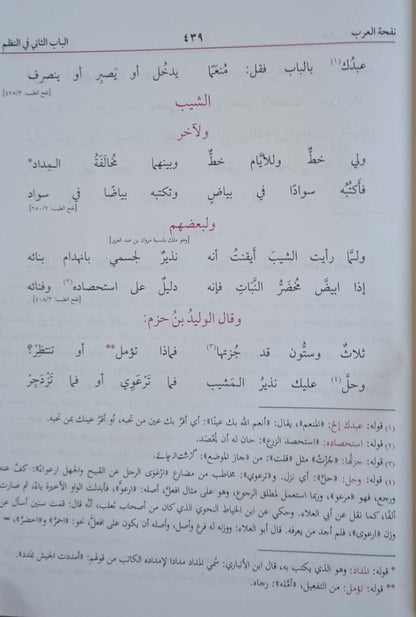 نفحة العرب ٤٣٩ الباب الثاني في النظم
عبدُك(١) بالباب فقل: مُنعمًا يدخُل أو يَصبِر أو ينصرف
[نفح الطيب: ]
الشيب
ولآخر
ولي خطٌّ وللأيّام خطٌّ وبينهما مُخالَفَةُ المِداد*
فأكتُبُه سوادًا في بياضٍ وتكتبه بياضًا في سواد
[نفح الطيب: ]
ولبعضهم
[وهو ملك بلنسية مروان بن عبد العزيز]
ولمّا رأيت الشيبَ أيقنتُ أنه نذيرٌ لجسمي بانهدام بنائه
إذا ابيضَّ مُخضَرُّ النَّبَاتِ فإنه دليلٌ على استحصاده(٢) وفنائه
[نفح الطيب: ]
وقال الوليدُ بنُ حزم:
ثلاثٌ وستُّون قد جُزتها(٣) فماذا تؤمل** أو تنتظرُ؟
وحلَّ(٤) عليك نذيرُ المَشيب فما تَرْعَوِي أو فما تَزْدَجِرْ
(١) قوله: عبدك إلخ: «المنعم»، يقال: «أنعم الله بك عينًا»: أي أقرّ بك عين من تحبه، أو أقرّ عينك بمن تحبه.
(٢) قوله: استحصاده: «استحصد الزرع»: حان له أن يُحْصَد.
(٣) قوله: جزتُها: «الجُزْتُ» مثل «قلت»: من «جاز الموضع»:
(٤) قوله: وحل: «حلّ»: أي نزل. و«ترعوي»: مخاطب من مضارع «ارْعَوَى الرجل عن القبيح والجهل ارعواءً»: كفّ عنه
ورجع، فهو «مرعو»، وربما استعمل لمطلق الرجوع، وهو على مثال افعلّ، أصله: «ارعوّ»، فأبدلت الواو الأخيرة ياءً، ثم صارت
ألفًا، كما نقل عن أبي العلاء. وحكي عن ابن الخياط النحوي الذي كان من أصحاب ثعلب، أنّه قال: قمت سنين أسأل عن
وزن «ارعوى»، فلم أجد من يعرفه. قال أبو العلاء: ووزنه له فرع وأصل، وأصله أن يكون على افعلّ، نحو: «احمرّ» و«اخضرّ»، =
* قوله: المداد: وهو الذي يكتب به، قال ابن الأنباري: سُمّيَ المداد مدادا لإمداده الكاتب من قولهم: «أمددت الجيش بمدد».
** قوله: تؤمل: من التفعيل، «أمّله»: رجاه.